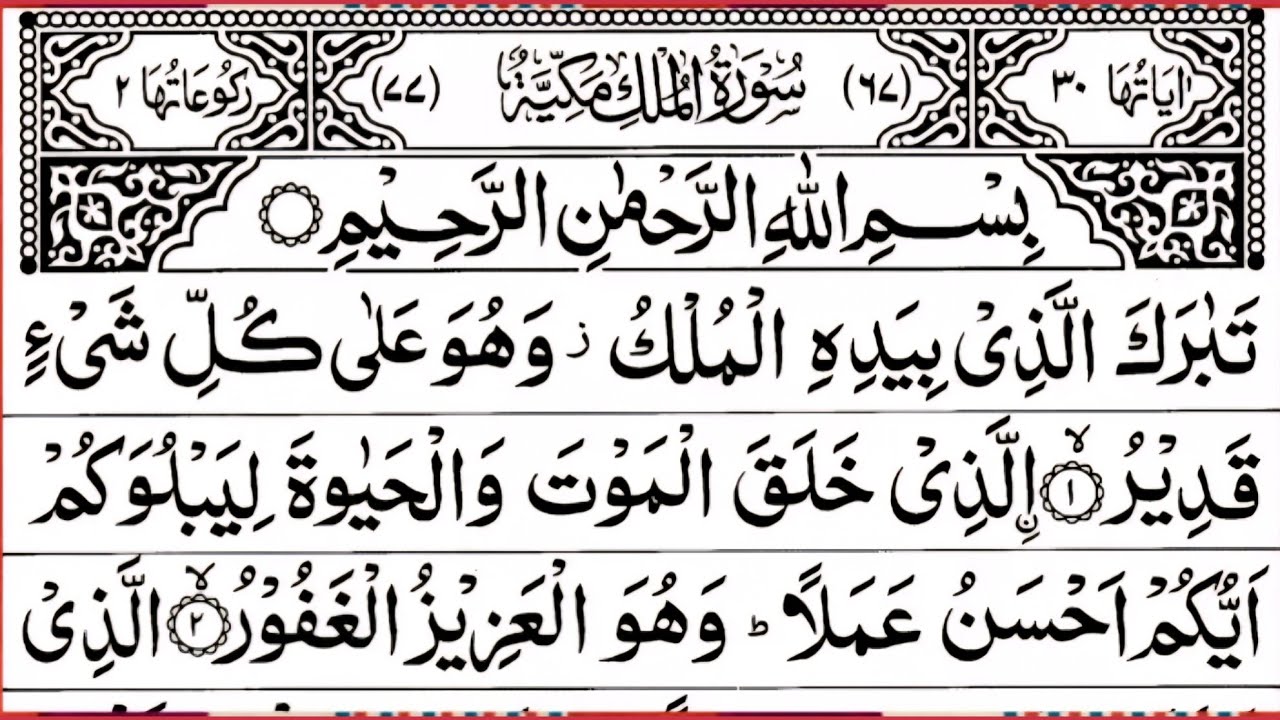 اٰيَاتُهَا ٣٠ (٦٧) سُوْرَةُ الْمُلْكِ مَكِّيَّةٌ (٧٧) رُكُوْعَاتُهَا ٢
بِسْمِ اللّٰهِ الرَّحْمٰنِ الرَّحِيْمِ ۝
تَبٰرَكَ الَّذِىْ بِيَدِهِ الْمُلْكُ ز وَهُوَ عَلٰى كُلِّ شَىْءٍ
قَدِيْرُ ۝١ۙ اِۨلَّذِىْ خَلَقَ الْمَوْتَ وَالْحَيٰوةَ لِيَبْلُوَكُمْ
اَيُّكُمْ اَحْسَنُ عَمَلًا ؕ وَهُوَ الْعَزِيْزُ الْغَفُوْرُ ۝٢ۙ الَّذِىْ